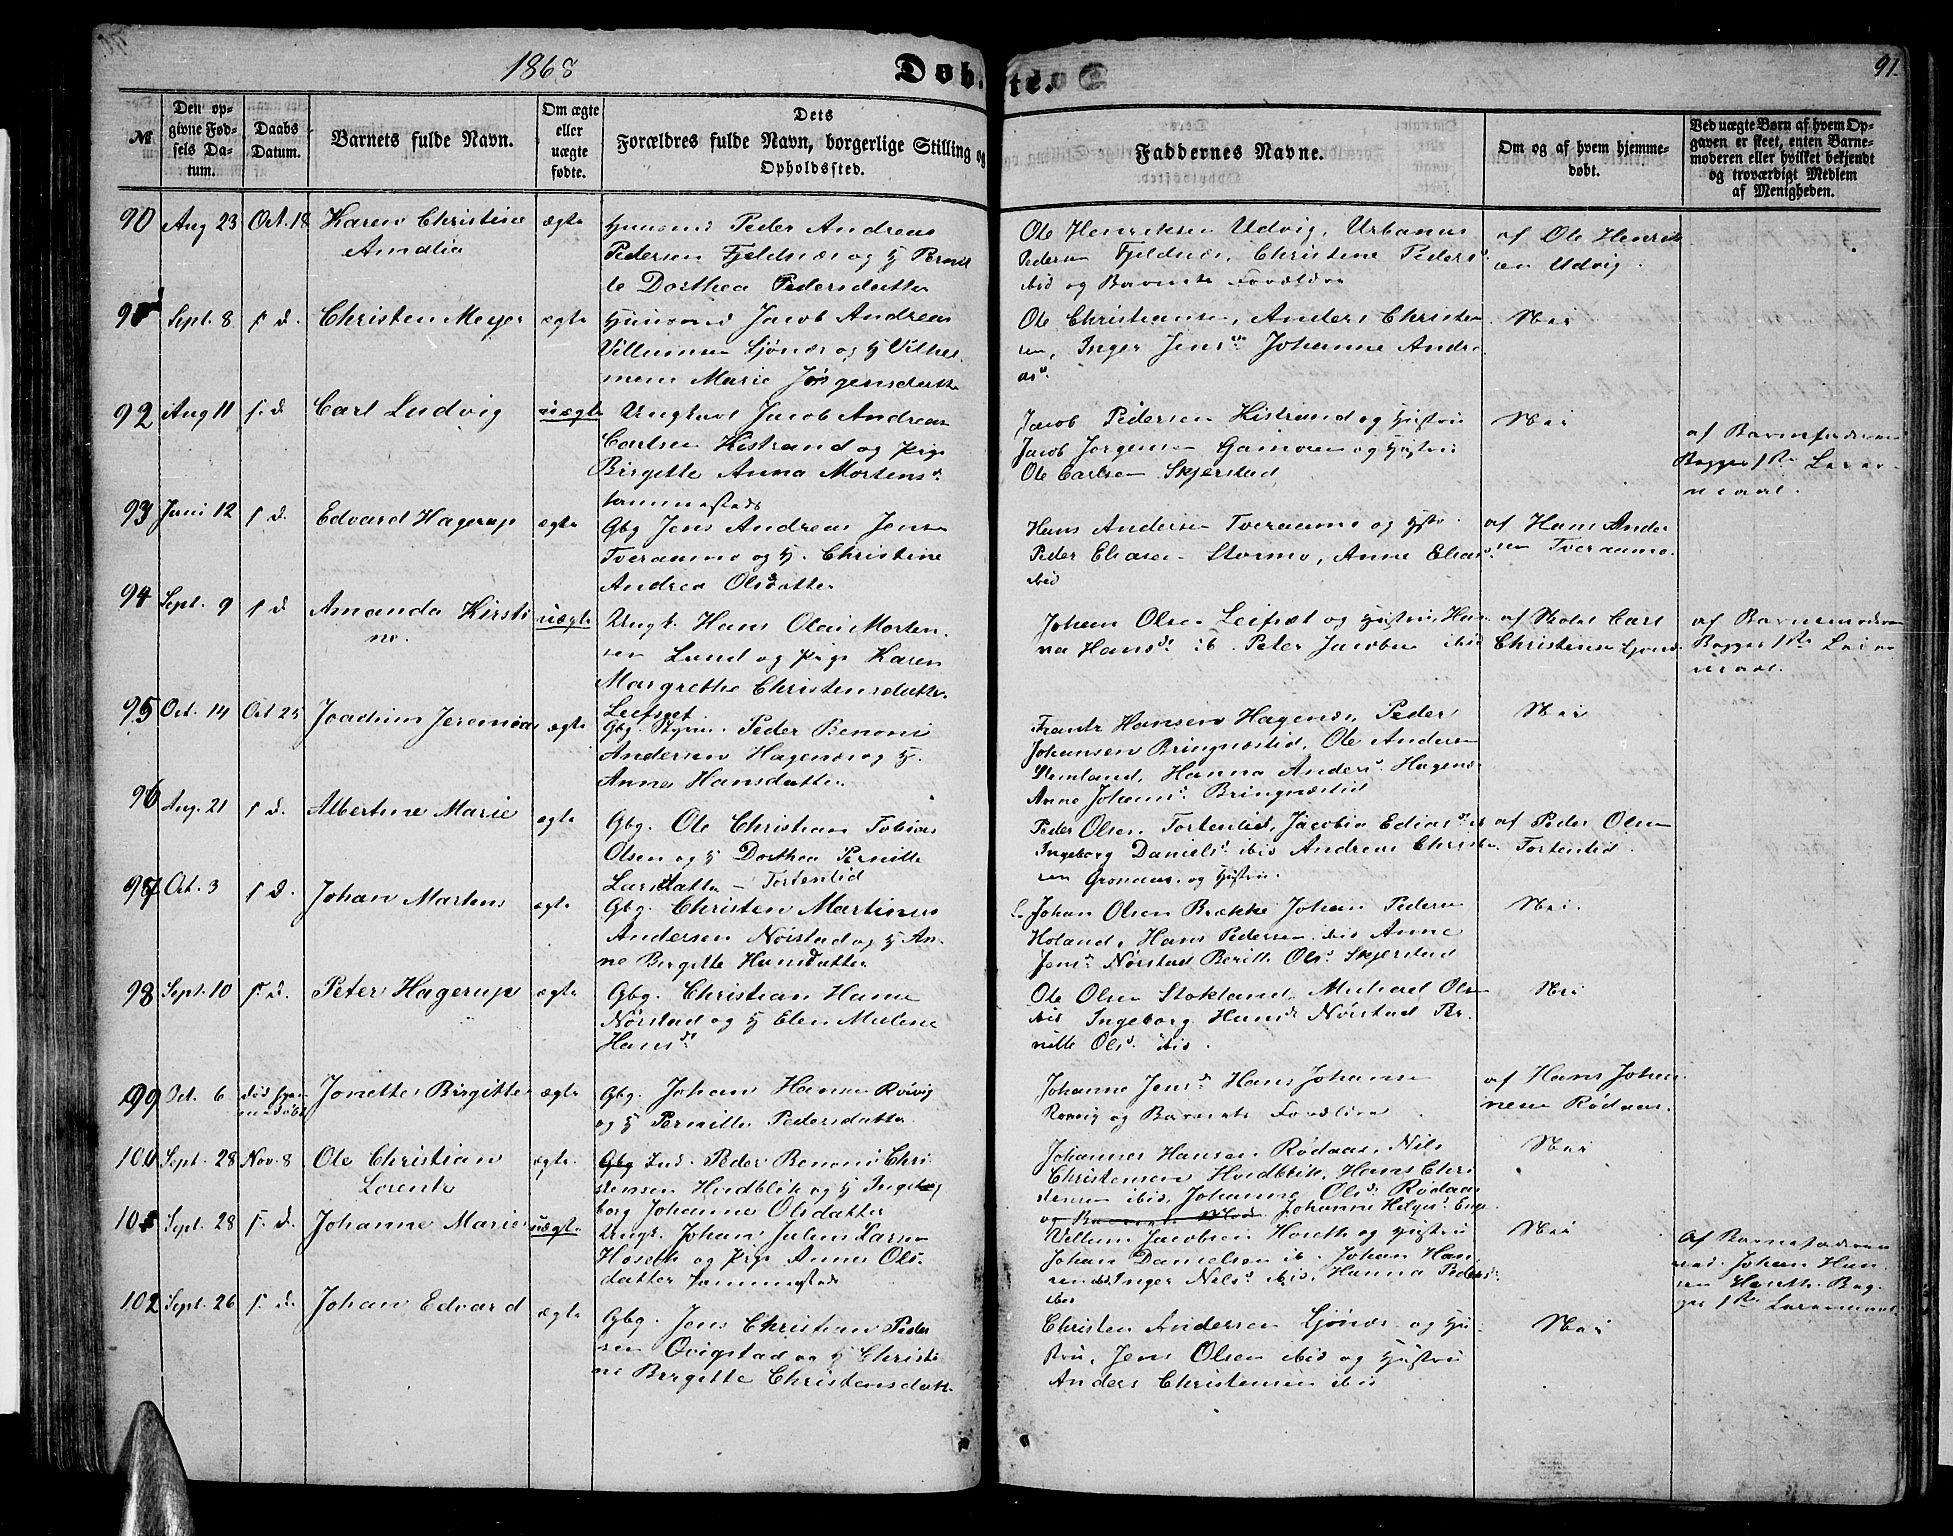 1868
Døbte.
91.
№
Den op-
givne Fød-
sels Da-
tum.
Daabs
Datum.
Barnets fulde Navn.
Om ægte
eller
uægte
fødte.
Dets
Forældres fulde Navn, borgerlige Stilling og
Opholdssted.
Faddernes Navne.
Om og af hvem hjemme-
døbt.
Ved uægte Børn af hvem Op-
gaven er skeet, enten Barne-
moderen eller hvilket bekjendt
og troværdigt Medlem
af Menigheden.
90 Aug 23 Oct. 18 Karen Christine
Amalia
ægte
Huusmd Peder Andreas
Pedersen Fjeldnæs og H Pernil
le Dorthea Pedersdatter
Ole Henriksen Udvig, Urbanus
Pedersen Fjeldnæs, Christine Peders
ibid og Barnets Forældre
af Ole Henrik
sen Udvig.
91 Sept. 8 s. d. Christen Meyer
ægte
Huusmd Jacob Andreas
Villumsen Ljønæs og H Vilhel
mem Marie Jørgensdatter
Ole Christiansen, Anders Christen
sen, Inger Jensd. Johanne Andre
asd.
Nei
92 Aug 11 s. d. Carl Ludvig
uægte
Ungkarl Jacob Andreas
Carlsen Kistrand og Pige
Birgitte Anna Mortensd.
sammesteds
Jacob Pedersen Kistrand og Hustru
Jacob Jørgensen og Hustru
Ole Carlsen Skjerstad
Nei
af Barnefaderen
Begges 1ste Leier-
maal.
93 Juni 12 s. d. Edvard Hagerup
ægte
Gbg Jens Andreas Jensen
Tveraamo og H. Christine
Andrea Olsdatter
Hans Andersen Tveraamo og Hstr.
Peder Eliasen Stormo, Anne Eliasd
ibid
af Hans Ander
sen Tveraamo.
94 Sept. 9 s. d. Amanda Kirsti
ne.
uægte
Ungk. Hans Olai Morten
sen Lund og Pige Karen
Margrethe Christensdatter
Leifset.
Johan Olsen Leifset og Hustru, Han
na Hansd. ib. Peter Jacobsen ibid
af Skolel Carl
Christensen Ljønes.
af Barnemoderen
Begges 1ste Leier
maal.
95 Oct. 14 Oct 25 Joachim Jeremias
ægte
Gbg. Peder Benoni
Andersen Hagenæs og H.
Anne Hansdatter
Frants Hansen Hagenæs, Peder
Johansen Bringnæslid, Ole Andersen
Stemland, Hanna Andersd. Hagenæs
Anne Johansd. Bringnæslid
Nei
96 Aug. 21 s. d. Albertine Marie
ægte
Gbg. Ole Christian Tobias
Olsen og H Dorthea Pernille
Larsdatter - Tortenlid
Peder Olsen Tortenlid, Jacobia
Ingeborg Danielsd. ibid Andreas Christen
sen Grønaas og Hustru.
af Peder Olsen
Tortenlid.
97 Oct. 3 s. d. Johan Martens
ægte
Gbg. Christen Martinus
Andersen Nøistad og H An-
ne Birgitte Hansdatter
Johan Olsen Brække Johan Pedersen
Holand, Hans Pedersen ibid Anne
Jensd. Nøistad Berith Olsd. Skjerstad
Nei.
98 Sept. 10 s. d. Peter Hagerup
ægte
Gbg. Christian Hansen
Nøistad og H Elen Malene
Hansd.
Ole Olsen Stokland, Michael Olsen
ibid Ingeborg Hansd. Nøistad Per-
nille Olsd. ibid.
Nei
99 Oct. 6 død hjem-
medøbt
Jonette Birgitte
ægte
Gbg. Johan Hansen Røvig
og H Pernille Pedersdatter
Johanne Jensd. Hans Johansen
Rørvig og Barnets Forældre
af Hans Johan
nesen Rødaas.
100 Sept. 28 Nov. 8 Ole Christian
Lorents
ægte.
Gbg Ind. Peder Benoni Chri
stensen Hvidblik og H Inge
borg Johanne Olsdatter
Johannes Hansen Rødaas, Nils
Christensen Hvidblik, Hans Chri
stensen ibid, Johanna Olsd. Rødaas
og Barnets Mod. Johanne
Nei
101 Sept. 28 s. d. Johanne Marie
uægte
Ungk. Johan Julius Larsen
Hoseth og Pige Anne Ols-
datter sammesteds
Villum Jacobsen Hoseth og Hustru
Johan Danielsen ib. Johan Han
sen ibid, Inger Nilsd. ibid, Hanna Pedersd.
ibid
Nei
af Barnefaderen
ved Johan Han
sen Hoseth. Beg
ges 1ste Leiermaal.
102 Sept. 26 s. d. Johan Edvard
ægte
Gbg. Jens Christian Peder
sen Qvigstad og H Christi
ne Birgitte Christensdatr.
Christen Andersen Ljønes og Hu-
stru, Jens Olsen ibid og Hustru
Anders Christensen ibid
Nei